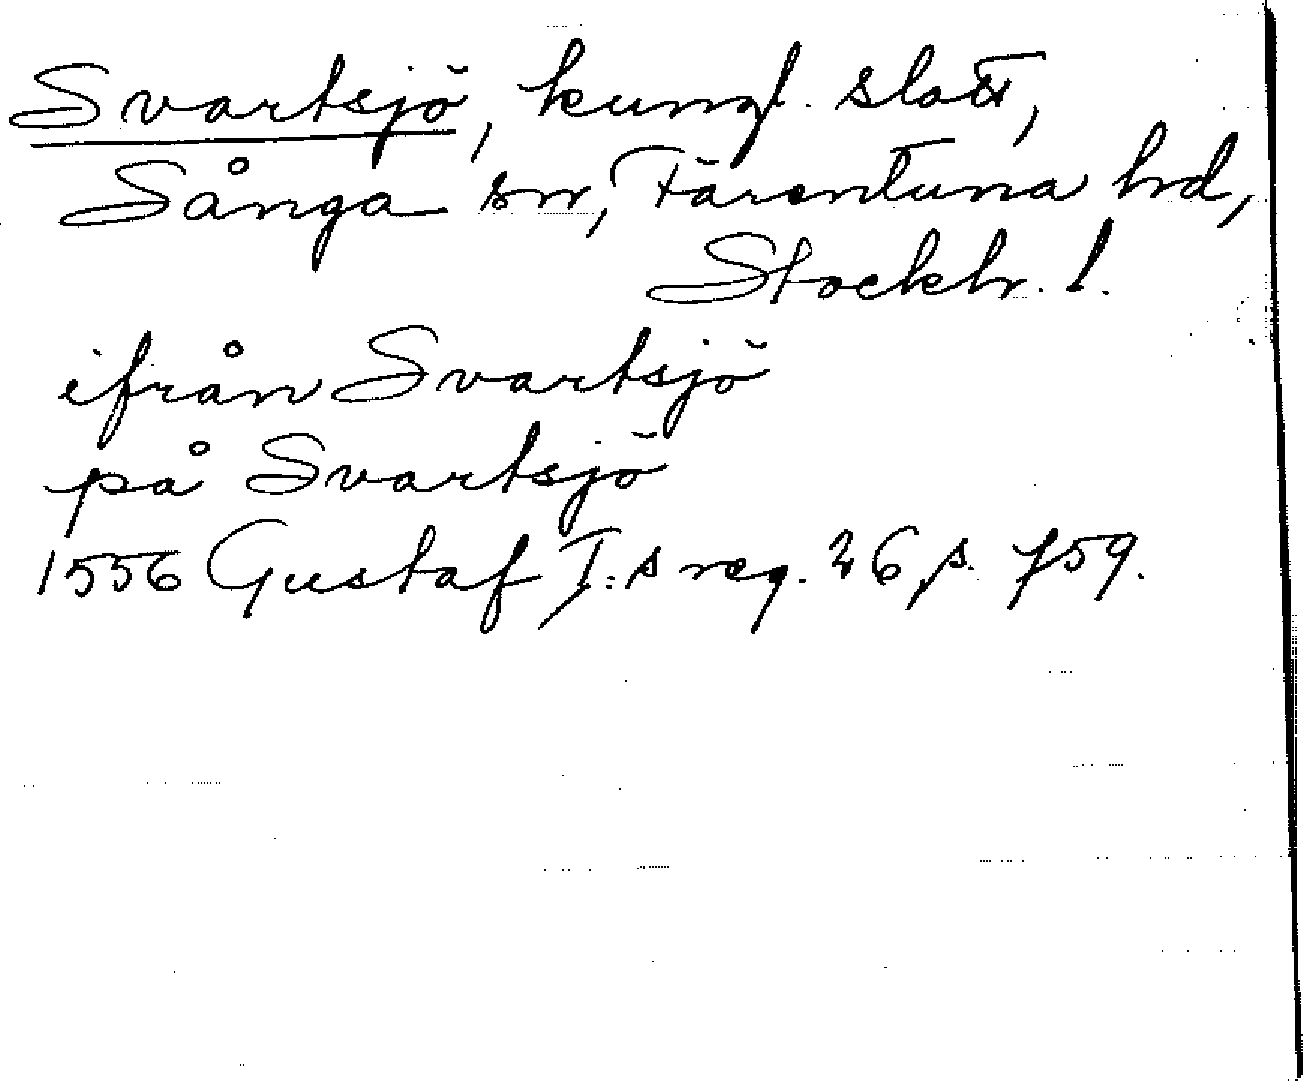 Svartsjö, kungl. slott,
Sånga sn, Färentuna hd,
Stockh. l.
ifrån Svartsjö
på Svartsjö
1556 Gustaf I:s reg. 26, s. 759.